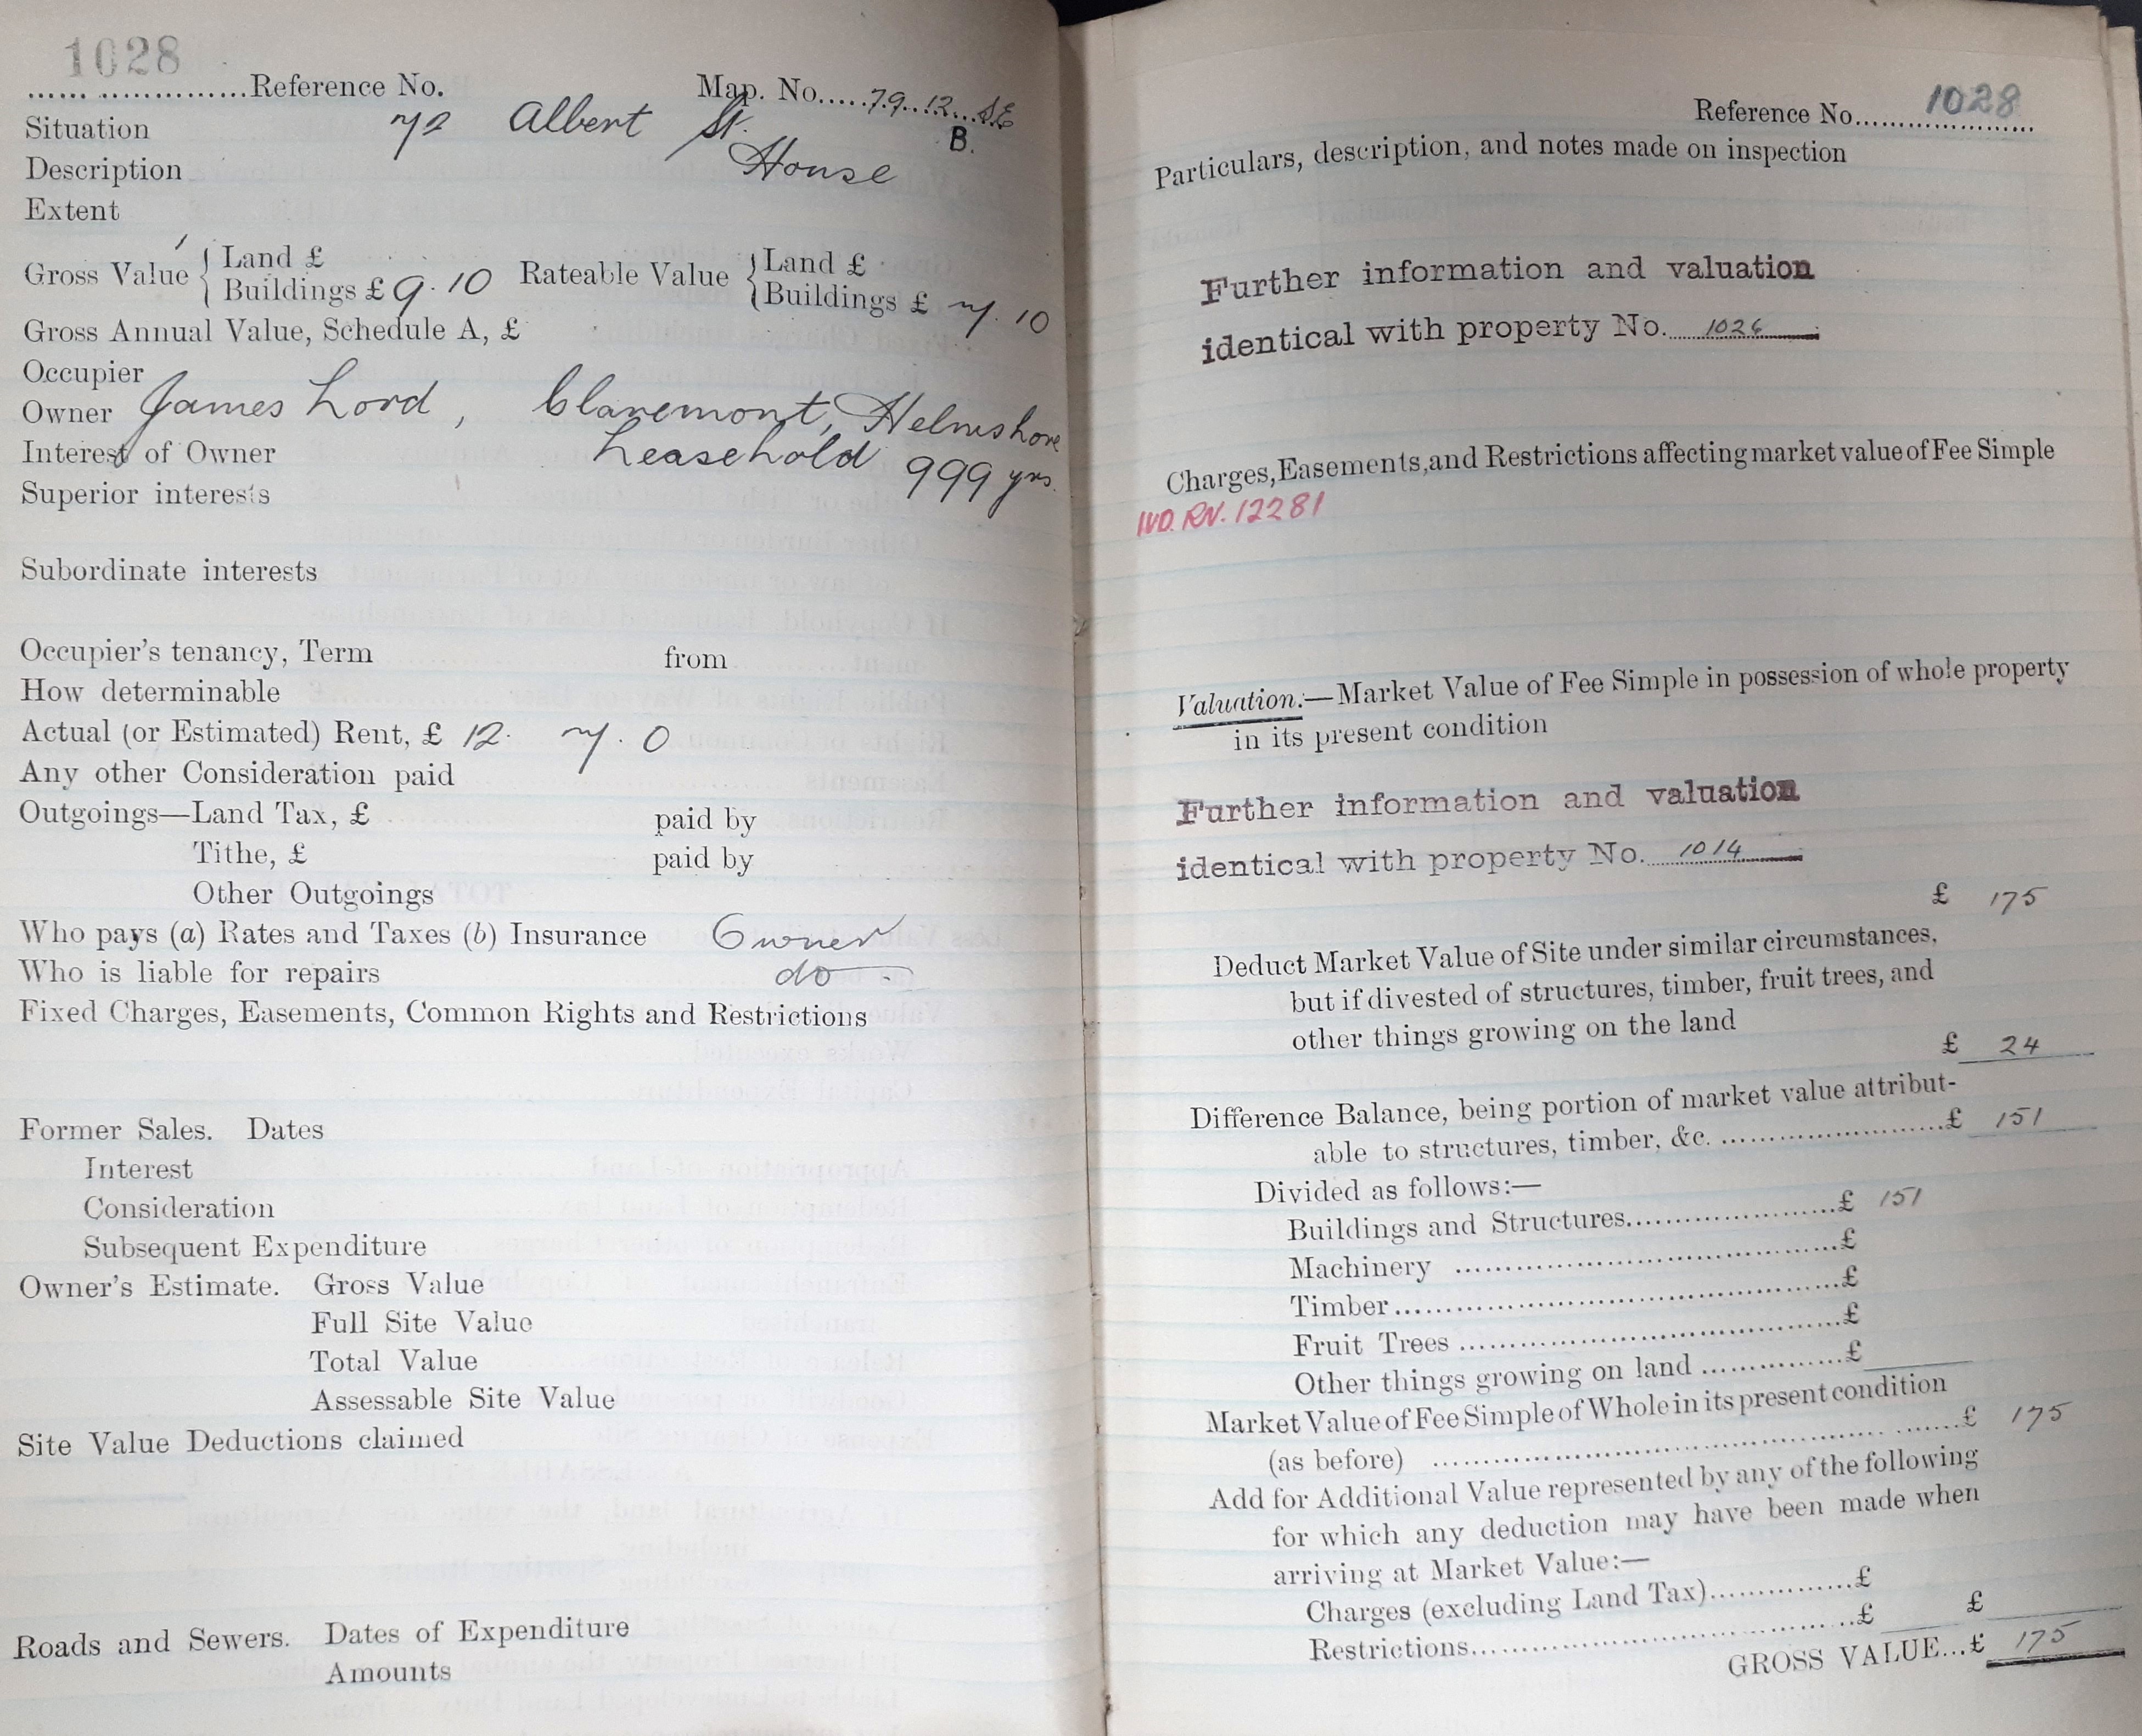 1028
...... ...............Reference No. Map. No.....79..12...S.E
Situation 72 Albert St. B.
Description House
Extent
Gross Value { Land £ Rateable Value { Land £
Buildings £ 9.10 Buildings £ 7.10
Gross Annual Value, Schedule A, £
Occupier
Owner James Lord, Claremont, Helmshore
Interest of Owner Leasehold 999 yrs.
Superior interests
Subordinate interests
Occupier's tenancy, Term from
How determinable
Actual (or Estimated) Rent, £ 12. 7. 0
Any other Consideration paid
Outgoings—Land Tax, £ paid by
Tithe, £ paid by
Other Outgoings
Who pays (a) Rates and Taxes (b) Insurance Owner
Who is liable for repairs do
Fixed Charges, Easements, Common Rights and Restrictions
Former Sales. Dates
Interest
Consideration
Subsequent Expenditure
Owner's Estimate. Gross Value
Full Site Value
Total Value
Assessable Site Value
Site Value Deductions claimed
Roads and Sewers. Dates of Expenditure
Amounts
Reference No. 1028
Particulars, description, and notes made on inspection
Further information and valuation
identical with property No.
Charges, Easements, and Restrictions affecting market value of Fee Simple
RN. 12281
Valuation:—Market Value of Fee Simple in possession of whole property
in its present condition
Further information and valuation
identical with property No. 1014
£ 175
Deduct Market Value of Site under similar circumstances,
but if divested of structures, timber, fruit trees, and
other things growing on the land
£ 24
Difference Balance, being portion of market value attribut-
able to structures, timber, &c. ........................£ 151
Divided as follows:—
Buildings and Structures......................£ 151
Machinery ..........................................£
Timber................................................£
Fruit Trees .........................................£
Other things growing on land ...............£
Market Value of Fee Simple of Whole in its present condition
(as before) ..................................................£ 175
Add for Additional Value represented by any of the following
for which any deduction may have been made when
arriving at Market Value:—
Charges (excluding Land Tax)...............£
Restrictions..........................................£ £
GROSS VALUE...£ 175